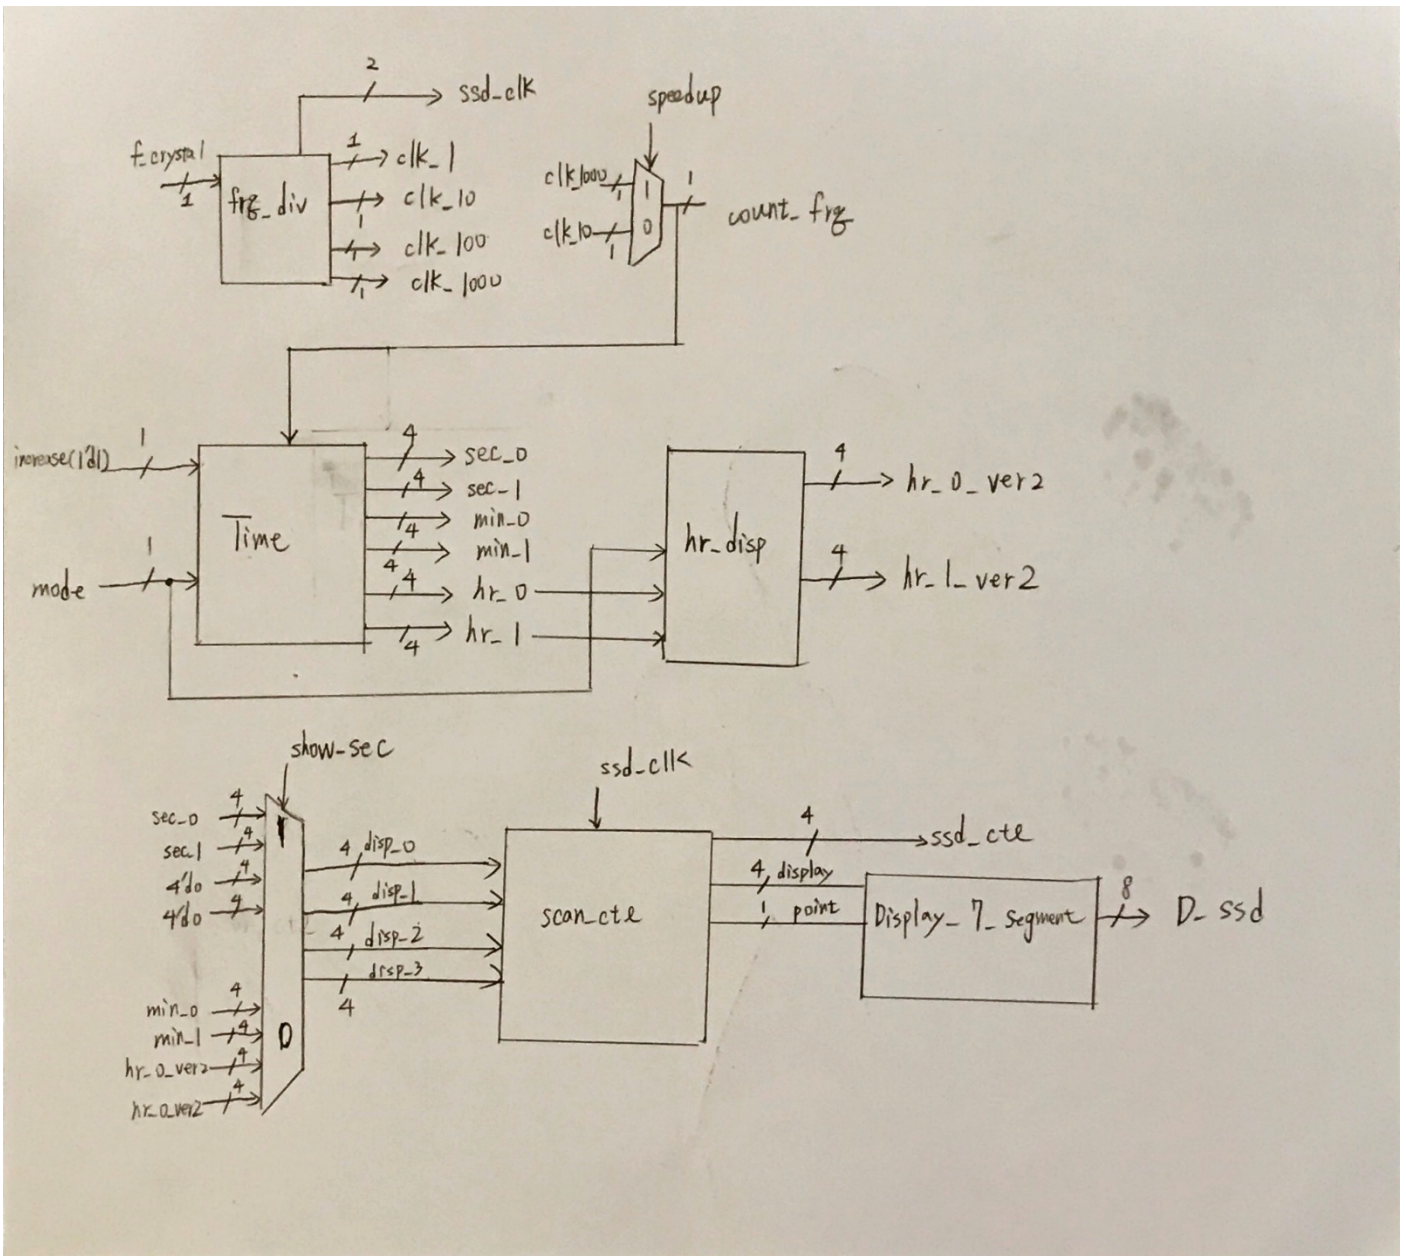 2
ssd_clk
speedup
f_crystal
1
frq_div
1
clk_1
clk_10
1
clk_100
1
clk_1000
1
clk_1000
1
clk_10
1
1
0
1
count_frq
increase(1'd1)
1
mode
1
Time
4
sec_0
4
sec_1
4
min_0
4
min_1
4
hr_0
4
hr_1
hr_disp
4
hr_0_ver2
4
hr_1_ver2
show_sec
sec_0
4
sec_1
4
4'd0
4
4'd0
4
min_0
4
min_1
4
hr_0_ver2
4
hr_0_ver2
4
1
0
4 disp_0
4 disp_1
4 disp_2
disp_3
4
ssd_clk
scan_ctl
4
ssd_ctl
4 display
1 point
Display_7_segment
8
D_ssd